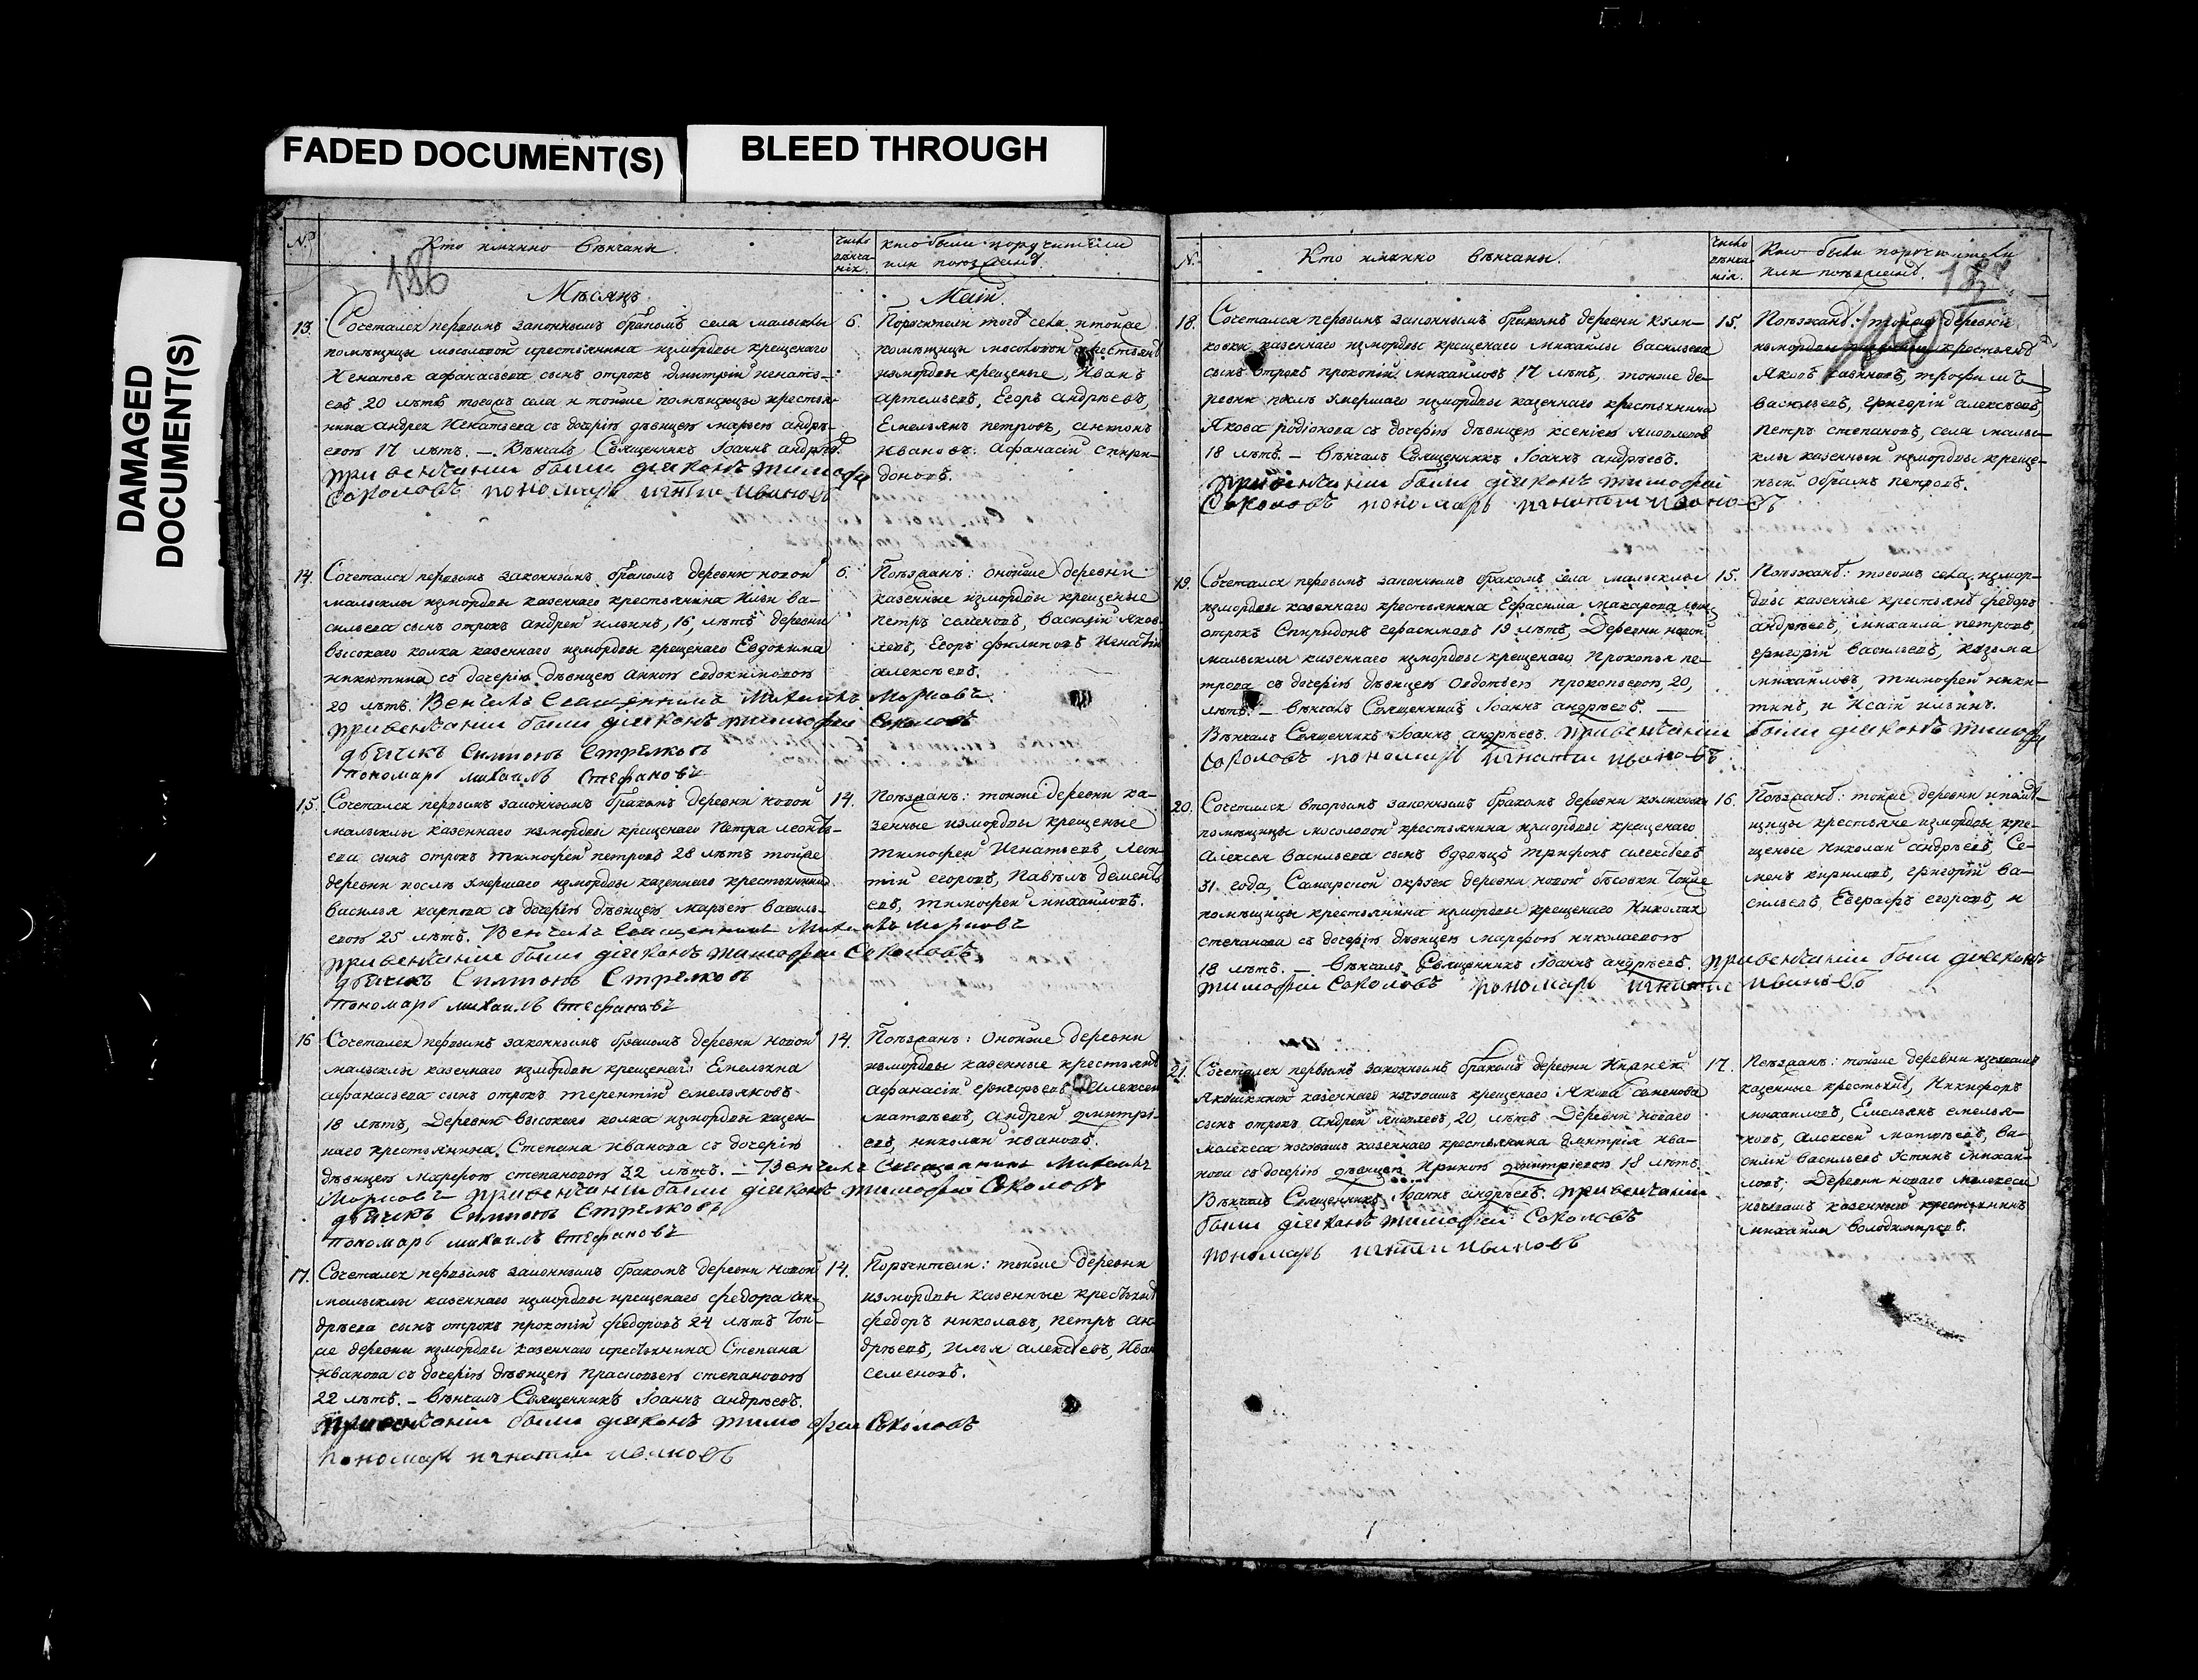 FADED DOCUMENT(S)
BLEED THROUGH
DAMAGED
DOCUMENT(S)
№
Кто именно вѣнчаны.
число
вѣнча-
нія.
кто были поручители
или поезжанѣ.
186
Мѣсяцъ
Маій.
13.
Сочетался первымъ законнымъ бракомъ села малыклы
помѣщицы мосоловой крестьянина измордвы крещенаго
Игнатья афанасьева сынъ отрокъ димитрій игнатъ-
евъ 20 лѣтъ тогожъ села и тойже помѣщицы крестья-
нина андрея Игнатьева съ дочерію дѣвицею марьею андрѣ-
евою 17 лѣтъ. — Вѣнчалъ Священникъ Іоаннъ андрѣевъ.
привенчании были діяконъ тимофей
Соколовъ пономарь игнатии ивановъ
6.
Поручители тогожъ села и тойже
помѣщицы мосоловой крестьянѣ
измордвы крещеные, Иванъ
артемьевъ, Егоръ андрѣевъ,
Емельянъ петровъ, антонъ
ивановъ. Афанасій спири-
доновъ.
14.
Сочетался первымъ законнымъ бракомъ деревни новой
малыклы измордвы казеннаго крестьянина Ильи ва-
сильева сынъ отрокъ андрей ильинъ, 16, лѣтъ деревни
высокаго колка казеннаго измордвы крещенаго Евдокима
никитина съ дочерію дѣвицею анною евдокимовою
20 лѣтъ. Венчалъ Священникъ Михаилъ Морисовъ
привенчании были діяконъ тимофей Соколовъ
дьячикъ Симионъ Стрелковъ
пономарь михаилъ Стефановъ
6.
Поѣзжанъ: онойже деревни
казенные измордвы крещеные
петръ семеновъ, василій яков-
левъ, Егоръ филиповъ Игнатій
алексѣевъ.
15.
Сочетался первымъ законнымъ бракомъ деревни новой
малыклы казеннаго измордвы крещенаго Петра леонтъ-
ева сынъ отрокъ тимофей петровъ 28 лѣтъ тойже
деревни послѣ умершаго измордвы казеннаго крестьянина
василья карпова съ дочерію дѣвицею марьею василь-
евою 25 лѣтъ. Венчалъ Священникъ Михаилъ Морисовъ
привенчании были діяконъ тимофей Соколовъ
дьячикъ Симионъ Стрелковъ
пономарь михаилъ Стефановъ
14.
Поѣзжанъ: тойже деревни ка-
зенные измордвы крещеные
тимофей Игнатьевъ, леон-
тій егоровъ, Павелъ дементь-
евъ, тимофей михайловъ.
16
Сочетался первымъ законнымъ бракомъ деревни новой
малыклы казеннаго измордвы крещенаго Емельяна
афанасьева сынъ отрокъ терентій емельяновъ
18 лѣтъ, Деревни высокаго колка измордвы казен-
наго крестьянина Степана Иванова съ дочерію
дѣвицею марфою степановою 22 лѣтъ. — Венчалъ Священникъ Михаилъ
Морисовъ привенчании были діяконъ тимофей Соколовъ
дьячикъ Симионъ Стрелковъ
пономарь михаилъ Стефановъ
14.
Поѣзжанъ: Онойже деревни
измордвы казенные крестьянѣ
афанасій григорьевъ Алексей
матвѣевъ, андрей дмитрі-
евъ, николай ивановъ.
17.
Сочетался первымъ законнымъ бракомъ деревни новой
малыклы казеннаго измордвы крещенаго федора ан-
дрѣева сынъ отрокъ прокопій федоровъ 24 лѣтъ той-
же деревни измордвы казеннаго крестьянина Степана
Иванова съ дочерію дѣвицею прасковьею степановою
22 лѣтъ. — Вѣнчалъ Священникъ Іоаннъ андрѣевъ.
привенчании были діяконъ тимофей Соколовъ
пономарь игнатии ивановъ
14.
Поручители: тойже деревни
измордвы казенные крестьянѣ
федоръ николаевъ, петръ ан-
дрѣевъ, Илья алексѣевъ, Иванъ
семеновъ.
№.
Кто именно вѣнчаны.
число
вѣнча-
нія.
Кто были поручители
или поѣзжанѣ.
187
18.
Сочетался первымъ законнымъ бракомъ деревни кули-
ковки казеннаго измордвы крещенаго михайлы васильева
сынъ отрокъ прокопій михайловъ 17 лѣтъ, тойже де-
ревни послѣ умершаго измордвы казеннаго крестьянина
Якова родіонова съ дочерію дѣвицею ксеніею яковлевою
18 лѣтъ. — Вѣнчалъ Священникъ Іоаннъ андрѣевъ.
привенчании были діяконъ тимофей
Соколовъ пономарь игнатии ивановъ
15.
Поѣзжанѣ: тойже деревни
измордвы крестьянѣ
Яковъ трофимъ
васильевъ, григорій алексѣевъ,
петръ степановъ, села малы-
клы казенный измордвы креще-
ный петровъ.
19.
Сочетался первымъ законнымъ бракомъ села малыклы
измордвы казеннаго крестьянина Ефасима макарова сынъ
отрокъ Спиридонъ герасимовъ 19 лѣтъ, Деревни новой
малыклы казеннаго измордвы крещенаго Прокопья пе-
трова съ дочерію дѣвицею овдотьею прокопьевою, 20,
лѣтъ. — Вѣнчалъ Священникъ Іоаннъ андрѣевъ. —
Вѣнчалъ Священникъ Іоаннъ андрѣевъ. привенчании были діяконъ тимофей
Соколовъ пономарь игнатии ивановъ
15.
Поѣзжанѣ: тогожъ села измор-
двы казенные крестьянѣ федоръ
андрѣевъ, михайла петровъ,
григорій васильевъ, козьма
михайловъ, тимофей ники-
тинъ, и Исай ильинъ.
20.
Сочетался вторымъ законнымъ бракомъ деревни куликовки
помѣщицы мосоловой крестьянина измордвы крещенаго
Алексея васильева сынъ вдовецъ трифонъ алексѣевъ
31. года, Самарской округи деревни новой бесовки тойже
помѣщицы крестьянина измордвы крещенаго Николая
степанова съ дочерію дѣвицею марфою николаевою
18 лѣтъ. — Вѣнчалъ Священникъ Іоаннъ андрѣевъ. привенчании были діяконъ
тимофеи Соколовъ пономарь игнатии ивановъ
16.
Поѣзжанѣ: тойже деревни и помѣ-
щицы крестьяне измордвы кре-
щеные николай андрѣевъ, Се-
менъ кириловъ, григорій ва-
сильевъ, Еверафъ егоровъ, и
21.
Сочетался первымъ законнымъ бракомъ деревни
Якошкиной казеннаго изчувашъ крещенаго Якова семенова
сынъ отрокъ андрей яковлевъ, 20, лѣтъ Деревни новаго
малекеса изчувашъ казеннаго крестьянина дмитрія ива-
нова съ дочерію дѣвицею Ириною дмитріевою 18 лѣтъ.
Вѣнчалъ Священникъ Іоаннъ андрѣевъ. привенчании
были діяконъ тимофей Соколовъ
пономарь игнатии ивановъ
17.
Поѣзжанъ: тойже деревни изчувашъ
казенные крестьянѣ, Никифоръ
михайловъ, Емельянъ емелья-
новъ, алексей матвѣевъ, ва-
силій васильевъ Устинъ михай-
ловъ; Деревни новаго малекеса
изчувашъ казенный крестьянинъ
михайла володимировъ.